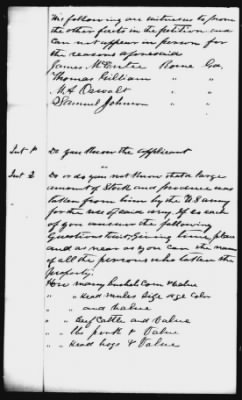 The following are witnesses to prove
the other facts in the petition and
can not appear in person for
the reasons aforesaid
James McEntee Rome Ga,
Thomas Gilliam " "
M A Dewalt " "
Samuel Johnson " "
Int 1 Do you know the applicant
Int 2 Do or do you not know that a large
amount of Stock and produce was
taken from him by the U S army
for the use of said army. If so each
of you answer the following
Questions to wit, Giving time place
and as near as you can the name
of all the persons who taken the
property.
How many bushels Corn & Value
" " Head mules size age color
" " and Value
" " Beef Cattle and Value
" " lbs pork & Value
" " Head hogs & Value